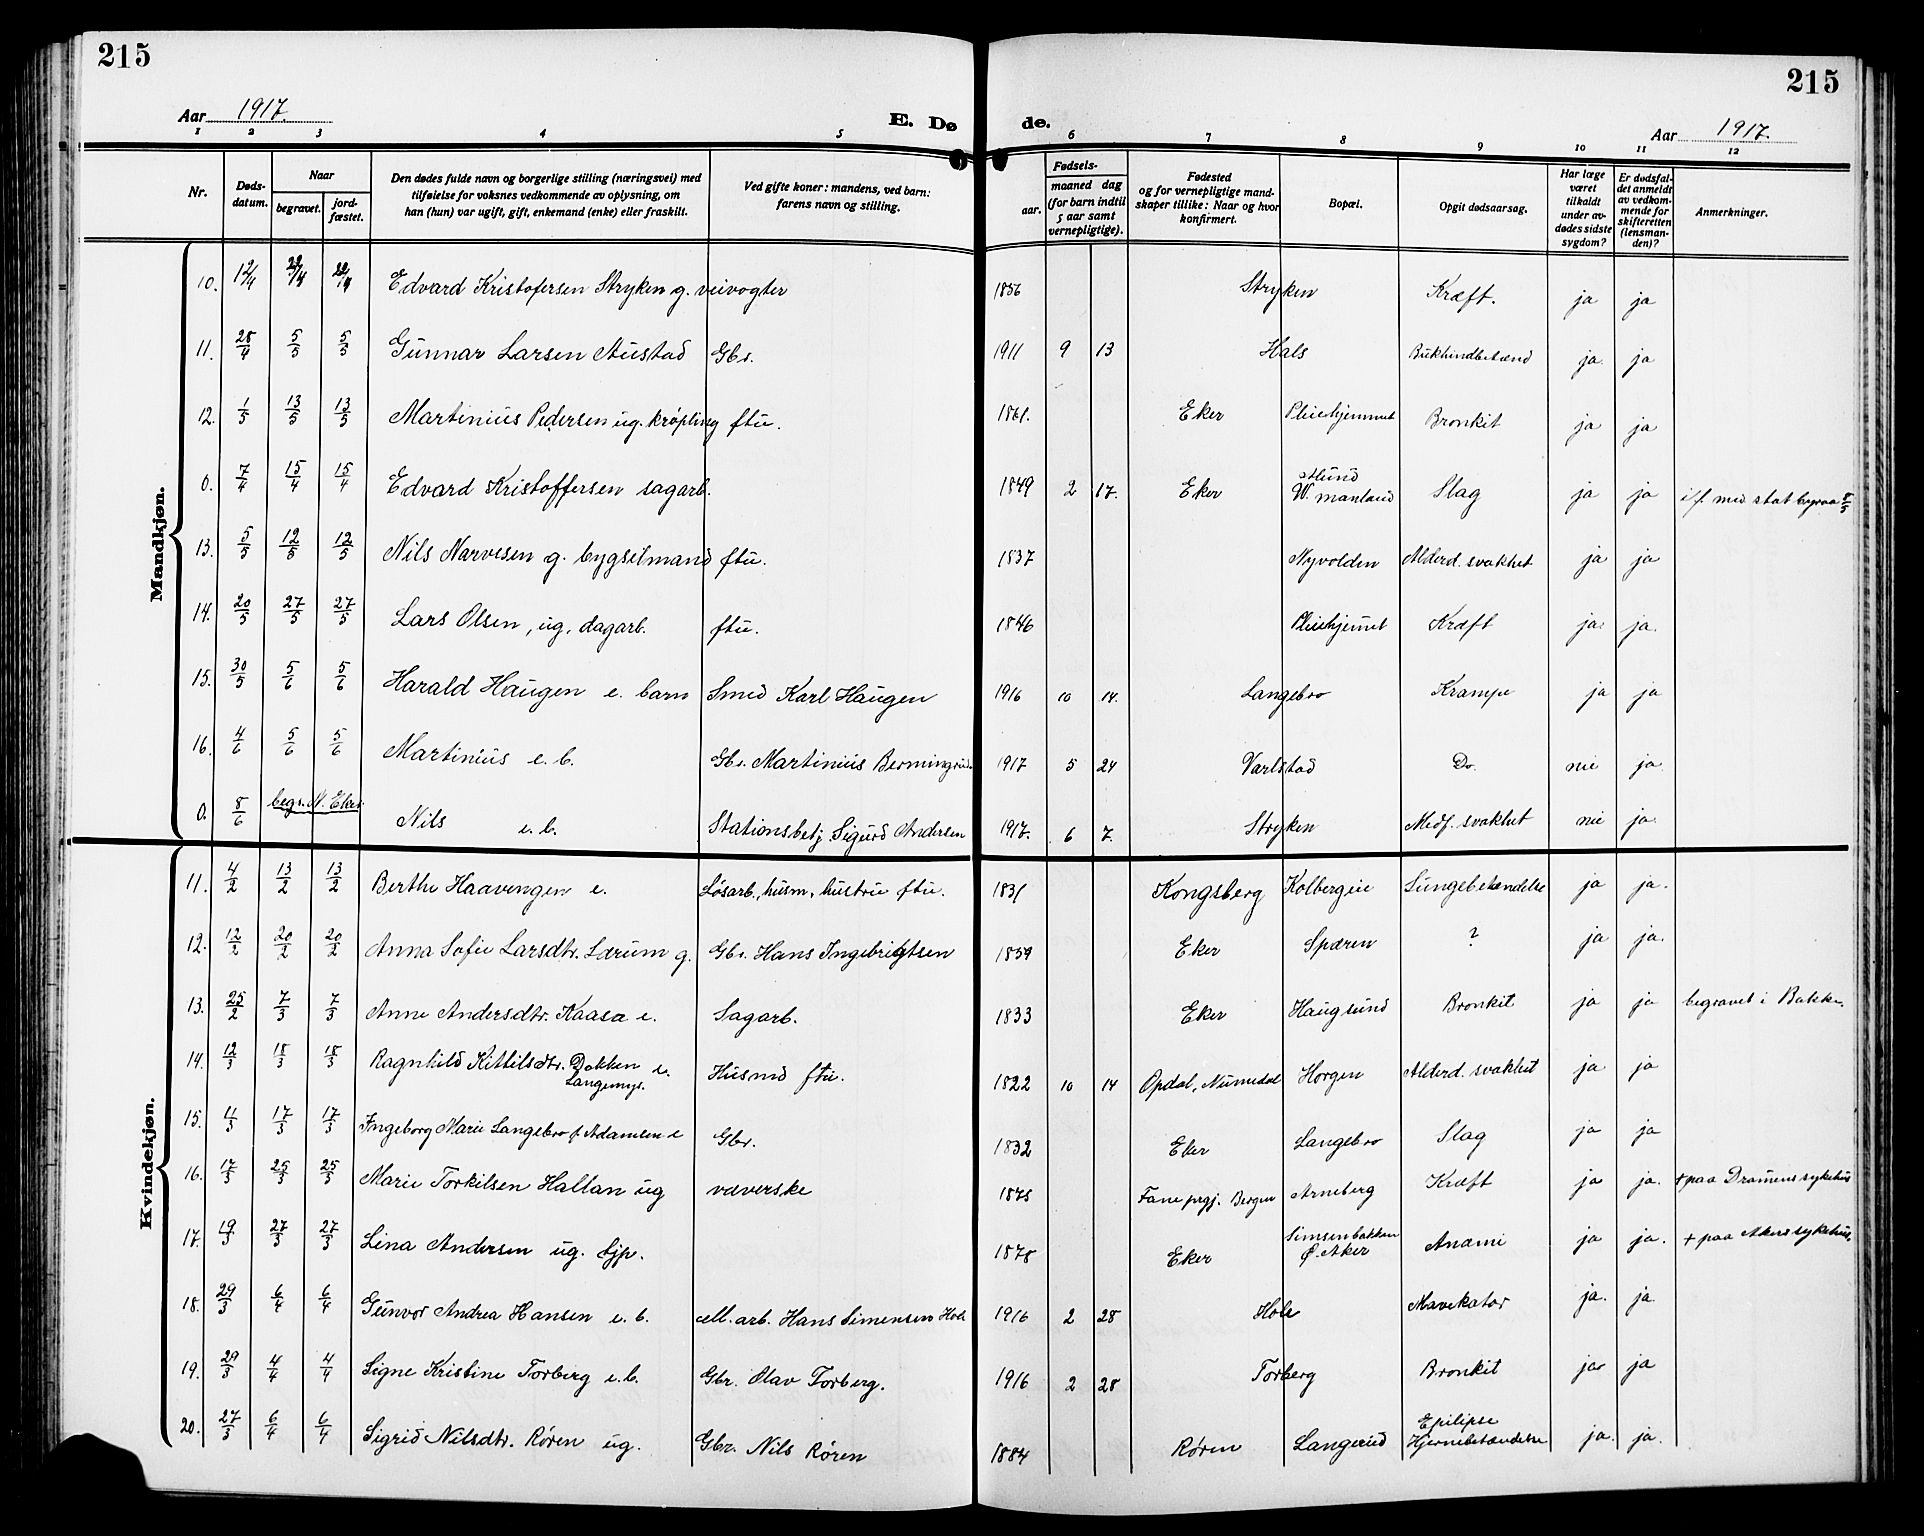 215
215
Aar 1917.
E. Dø
de.
Aar 1917.
1 2 3 4 5 6 7 8 9 10 11 12
Nr.
Døds-datum.
Naar
begravet.
jord-fæstet.
Den dødes fulde navn og borgerlige stilling (næringsvei) med
tilføielse for voksnes vedkommende av oplysning, om
han (hun) var ugift, gift, enkemand (enke) eller fraskilt.
Ved gifte koner: mandens, ved barn:
farens navn og stilling.
Fødsels-
aar.
maaned dag
(for barn indtil
5 aar samt
vernepligtige).
Fødested
og for vernepligtige mand-
skaper tillike: Naar og hvor
konfirmert.
Bopæl.
Opgit dødsaarsag.
Har læge
været
tilkaldt
under av-
dødes sidste
sygdom?
Er dødsfal-
det anmeldt
av vedkom-
mende for
skifteretten
(lensman-
den)?
Anmerkninger.
Mandkjøn.
10. 12/4 22/4 22/4 Edvard Kristofersen Stryken g. veivogter 1856 Stryken Kræft. ja ja
11. 28/4 5/5 5/5 Gunnar Larsen Austad Gbr. 1911 9 13 Hals Bukhindbetænd ja. ja
12. 1/5 13/5 13/5 Martinius Pedersen ug. krøpling ftu. 1861. Eker Pleiehjemmet Bronkit ja ja
0. 7/4 15/4 15/4 Edvard Kristoffersen sagarb. 1849 2 17. Eker W. manland Slag ja ja i/f med stat byraa 8/5
13. 5/5 12/5 12/5 Nils Narvesen g. bygselmand ftu. 1837 Nyvolden Alderd. svakhet ja ja
14. 20/5 27/5 27/5 Lars Olsen, ug. dagarb. ftu. 1846 Pleiehjemet Kræft ja ja.
15. 30/5 5/6 5/6 Harald Haugen e. barn Smed Karl Haugen 1916 10 14. Langebro Krampe ja ja
16. 4/6 5/6 5/6 Martinius e. b. Gbr. Martinius Bermingrud 1917 5 24 Varlstad Do. nei ja
0. 8/6 begr. N. Eker Nils e. b. Stationsbetj. Sigurd Andersen 1917. 6 7. Stryken Medf. svakhet nei ja.
Kvindekjøn.
11. 4/2 13/2 13/2 Berthe Haavengen e. Løsarb., husm. hustru ftu. 1831 Kongsberg Kolbergeie Lungebetændelse ja ja.
12. 12/2 20/2 20/2 Anna Sofie Larsdtr. Lærum g. Gbr. Hans Ingebrigtsen 1859 Eker Spæren ? ja ja.
13. 25/2 7/3 7/3 Anne Andersdtr. Kaasa e. Sagarb. 1833 Eker Haugsund Bronkit ja ja begravet i Bakke.
14. 12/3 18/3 18/3 Ragnhild Kittilsdtr. Dokken e. Husmd ftu. 1822 10 14 Opdal, Numedal Horgen Alderd. svakhet ja ja
Langemyr.
15. 11/3 17/3 17/3 Ingeborg Marie Langebro f. Adamsen e Gbr. 1832 Eker Langebro Slag ja ja
16. 17/3 25/3 25/3 Marie Torkilsen Hallan ug væverske 1875 Fane prgj. Bergen Arneberg Kræft ja ja. + paa Dramens sykehus
17. 19/3 27/3 27/3 Lina Andersen ug. tjp. 1878 Eker Simsenbakken Ø. Aker Anæmi ja ja. + paa Akers sykehus
18. 29/3 6/4 6/4 Gunvor Andrea Hansen e. b. cell. arb. Hans Simensen Hole 1916 2 28 Hole Mavekatar ja. ja
19. 29/3 4/4 4/4 Signe Kristine Torberg e. b. Gbr. Olav Torberg. 1916 2 28 Torberg Bronkit ja ja
20. 27/3 6/4 6/4 Sigrid Nilsdtr. Røren ug. Gbr. Nils Røren 1884 Røren Langerud Epilipse Hjernebetændelse ja. ja.